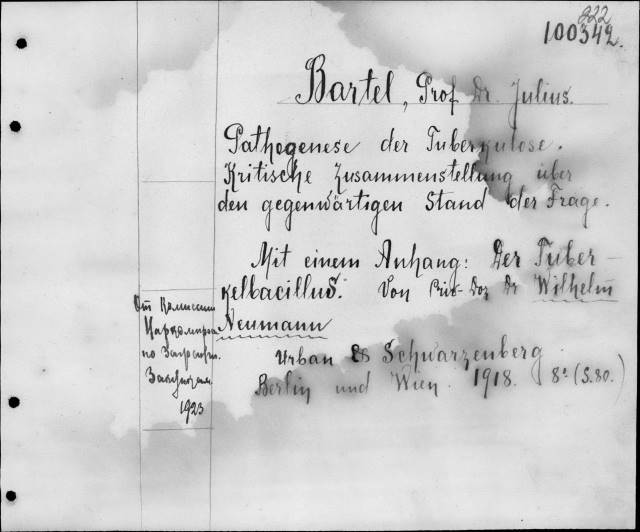 222
100342.
Bartel, Prof. Dr. Julius.
Pathogenese der Tuberkulose.
Kritische Zusammenstellung über
den gegenwärtigen Stand der Frage.
Mit einem Anhang: Der Tuber-
kelbacillus. Von Priv-Doz Dr Wilhelm
Neumann
Urban & Schwarzenberg
Berlin und Wien. 1918. 8° (S. 80.)
От Комиссии
Наркомпроса
по Загранич.
1923